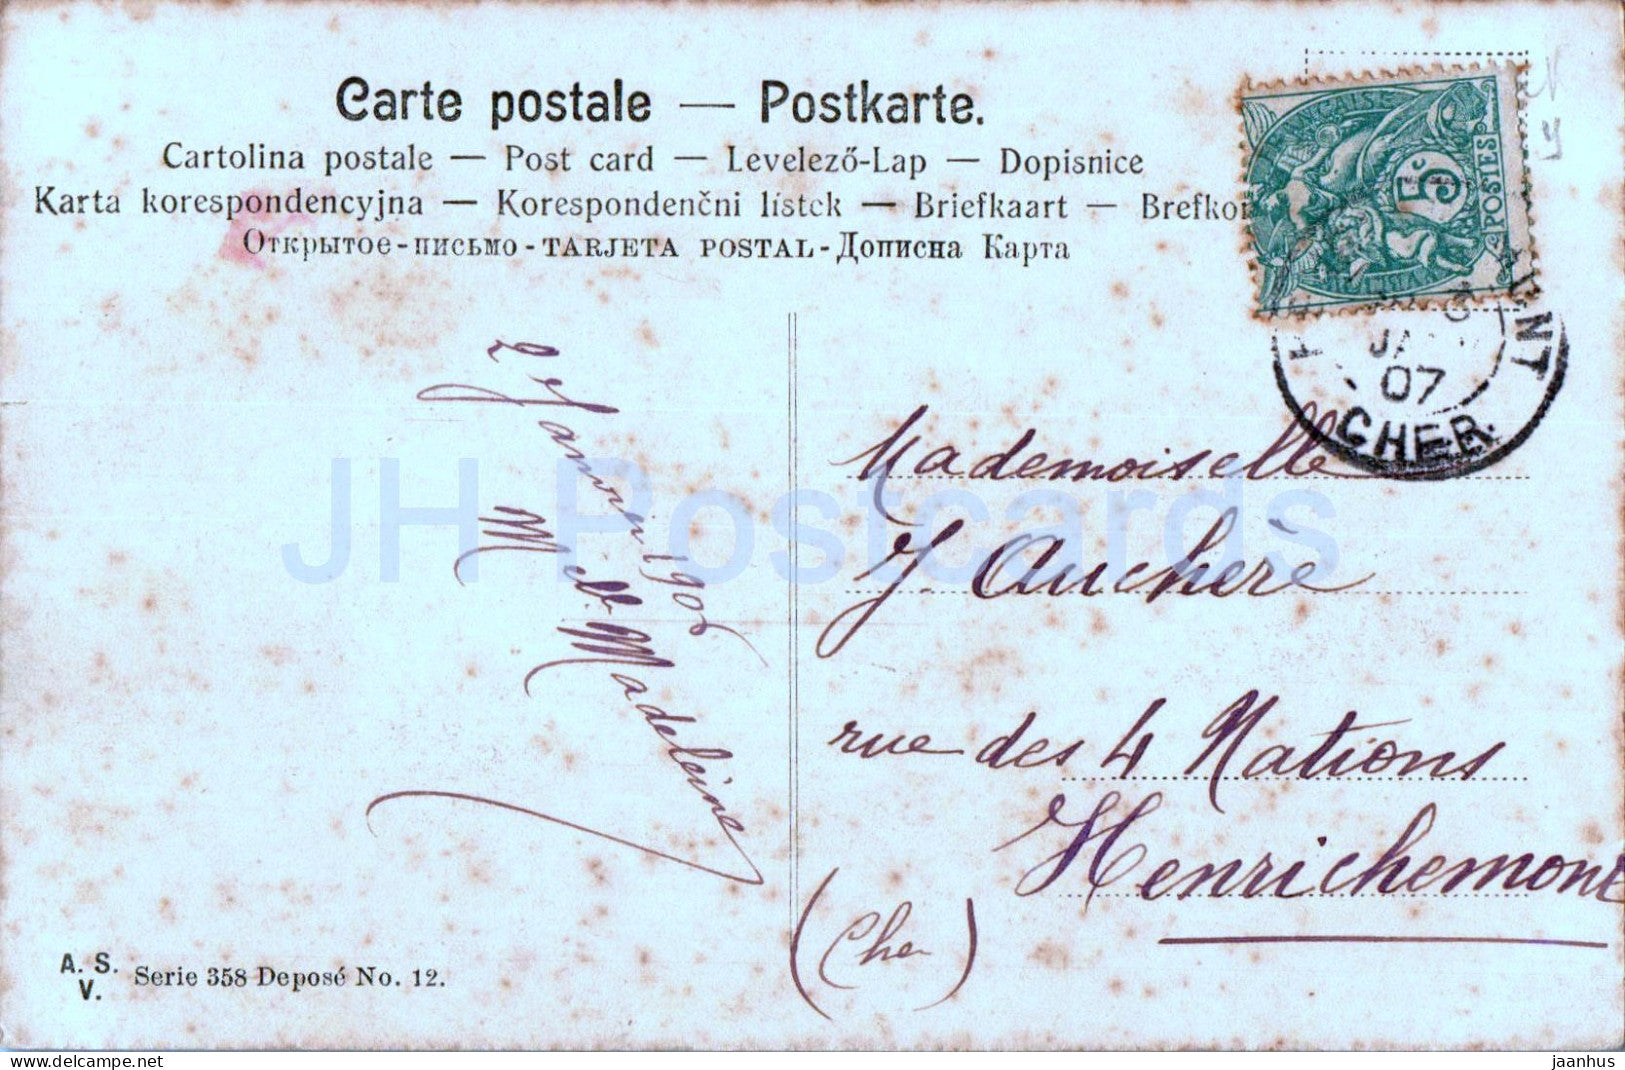 Carte postale — Postkarte.
Cartolina postale — Post card — Levelező-Lap — Dopisnice
Karta korespondencyjna — Korespondenčni lístek — Briefkaart — Brefkor
Открытое-письмо-TARJETA POSTAL-Дописна Карта
FRANÇAISE
5c
POSTES
JA
07
CHER.
2 Janvier 1906
Madeleine
Mademoiselle
J. Auchère
rue des 4 Nations
Henrichemont
(Cher)
JH Postcards
A. S.
V.
Serie 358 Deposé No. 12.
delcampe.net
jaanhus